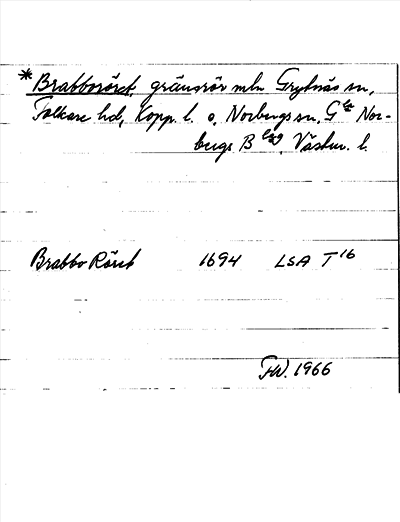 *Brabboröset, gränsrör mln Grytnäs sn,
Folkare hd, Kopp. l. o. Norbergs sn, Gla Nor-
bergs Blag, Västm. l.
Brabbo Röset 1694 LSA T16
FW. 1966